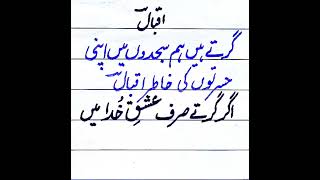 اقبالؔ
گرتے ہیں ہم سجدوں میں اپنی
حسرتوں کی خاطر اقبالؔ
اگر گرتے صرف عشقِ خُدا میں